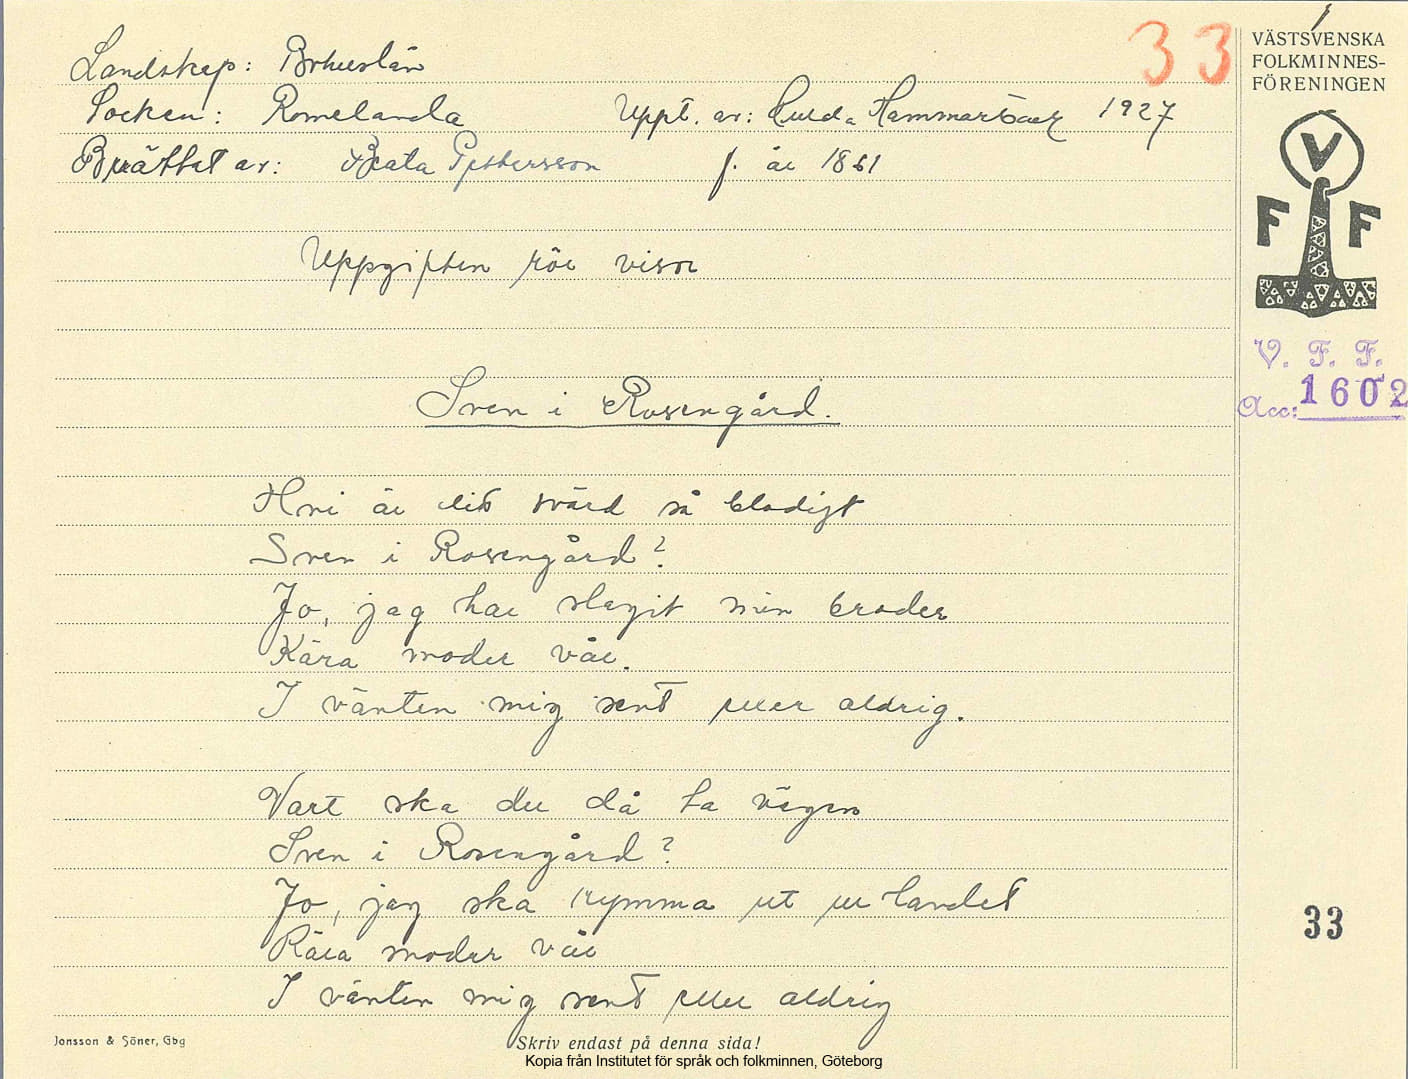 33
Landskap: Bohuslän
Socken: Romelanda Uppt. av: Hulda Hammarbäck 1927
Berättat av: Beata Pettersson f. år 1861
Uppgiften rör visor
Sven i Rosengård.
Hvi är ditt svärd så blodigt
Sven i Rosengård?
Jo, jag har slagit min broder
Kära moder vår.
I vänten mig sent eller aldrig.
Vart ska du då ta vägen
Sven i Rosengård?
Jo, jag ska rymma ut ur landet
Kära moder vår
I vänten mig sent eller aldrig
VÄSTSVENSKA
FOLKMINNES-
FÖRENINGEN
V
F F
V. F. F.
Acc: 1602
33
Jonsson & Söner, Gbg
Skriv endast på denna sida!
Kopia från Institutet för språk och folkminnen, Göteborg